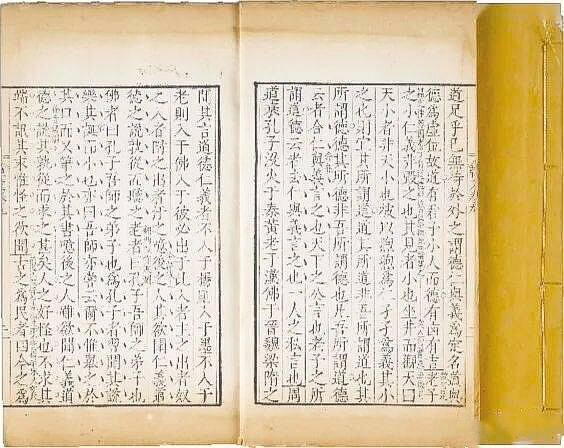 道足乎己無待於外之謂德仁與義爲定名道與
德爲虛位故道有君子小人而德有凶有吉老子
之小仁義非毀之也其見者小也坐井而觀天曰
天小者非天小也彼以煦煦爲仁孑孑爲義其小
之也則宜其所謂道道其所道非吾所謂道也其
所謂德德其所德非吾所謂德也凡吾所謂道德
云者合仁與義言之也天下之公言也老子之所
謂道德云者去仁與義言之也一人之私言也周
道衰孔子沒火于秦黃老于漢佛于晉魏梁隋之
間其言道德仁義者不入于楊則入于墨不入于
老則入于佛入于彼必出于此入者主之出者奴
之入者附之出者汙之噫後之人其欲聞仁義道
德之說孰從而聽之老者曰孔子吾師之弟子也
佛者曰孔子吾師之弟子也爲孔子者習聞其說
樂其誕而自小也亦曰吾師亦嘗云爾不惟舉之於
其口而又筆之於其書噫後之人雖欲聞仁義道
德之說其孰從而求之甚矣人之好怪也不求其
端不訊其末惟怪之欲聞古之爲民者四今之爲